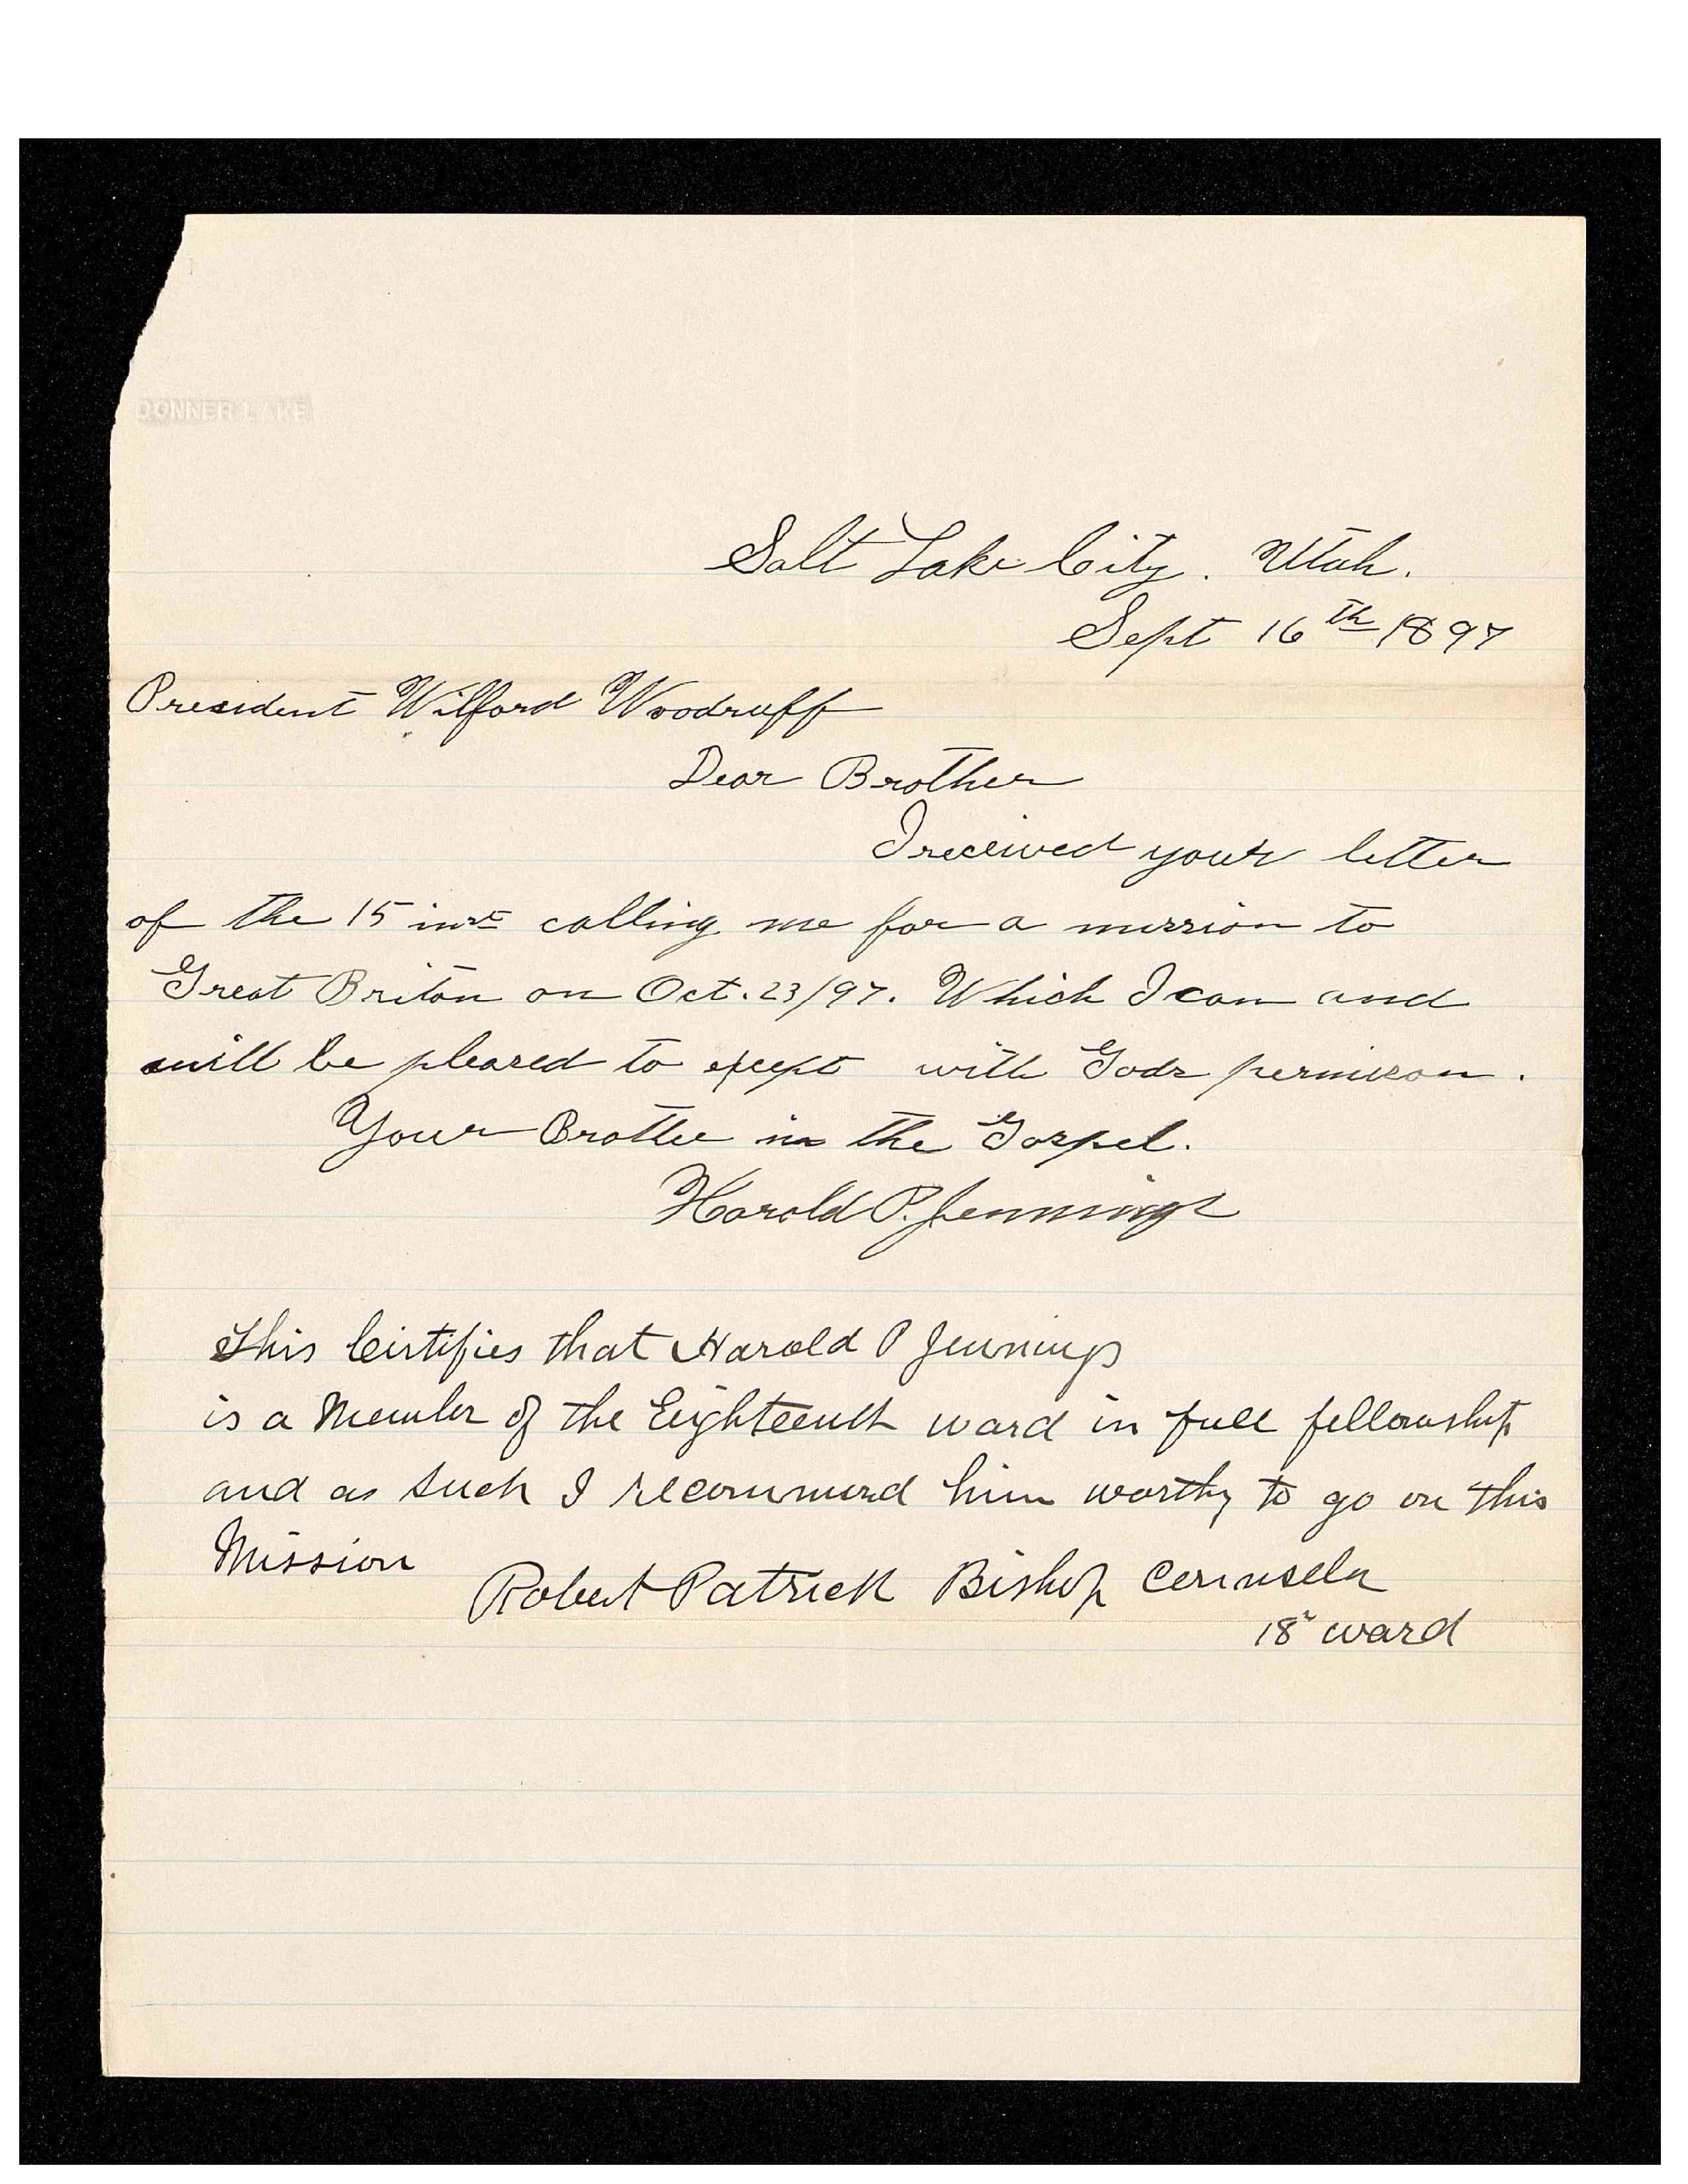 DONNER LAKE
Salt Lake City. Utah.
Sept 16th 1897
President Wilford Woodruff
Dear Brother
I received your letter
of the 15 inst calling me for a mission to
Great Briton on Oct. 23/97. Which I can and
will be pleased to except with Gods permison.
Your Brother in the Gospel.
Harold P. Jennings
This Certifies that Harold P Jennings
is a Member of the Eighteenth ward in full fellowship
and as such I recommend him worthy to go on this
Mission
Robert Patrick Bishop Counselor
18" ward